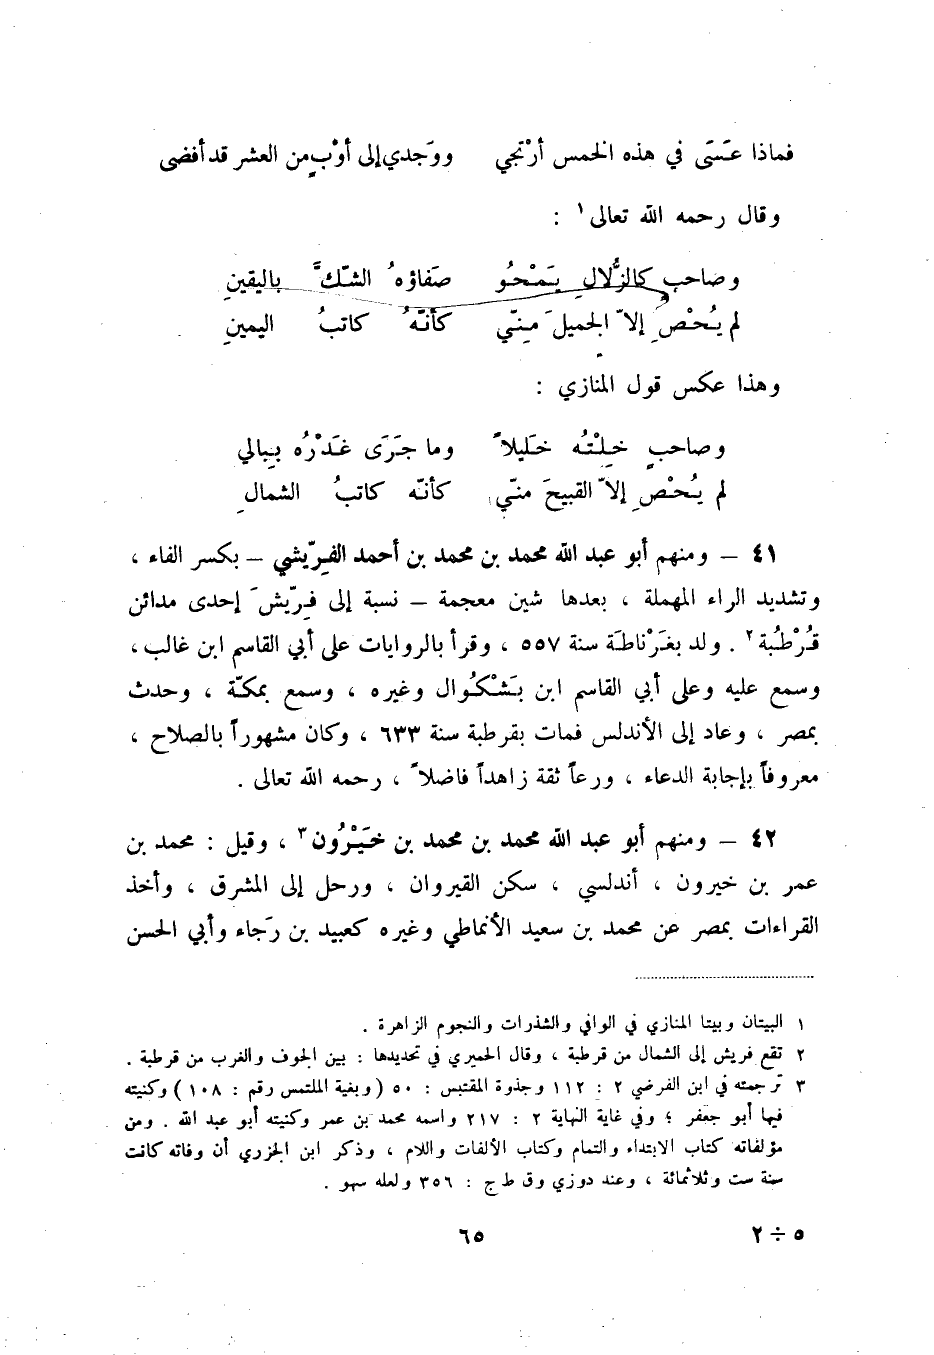 فماذا عَسَى في هذه الخمس أرْتجي ووَجدي إلى أوْبٍ من العشر قد أفضى
وقال رحمه الله تعالى١ :
وصاحبٍ كالزُّلالِ يَمْحُو صَفاؤهُ الشّكَّ باليقينِ
لم يُحْصِ إلاّ الجميلَ مِنّي كأنّهُ كاتبُ اليمينِ
وهذا عكس قول المنازي :
وصاحبٍ خِلْتُه خَليلاً وما جَرَى غَدْرُه بِبالي
لم يُحْصِ إلاّ القبيحَ منّي كأنّه كاتبُ الشمالِ
٤١ – ومنهم أبو عبد الله محمد بن محمد بن أحمد الفِرّيشي – بكسر الفاء ،
وتشديد الراء المهملة ، بعدها شين معجمة – نسبة إلى فِرّيشَ إحدى مدائن
قُرْطُبة٢ . ولد بغَرْناطَة سنة ٥٥٧ ، وقرأ بالروايات على أبي القاسم ابن غالب ،
وسمع عليه وعلى أبي القاسم ابن بَشْكُوال وغيره ، وسمع بمكّة ، وحدث
بمصر ، وعاد إلى الأندلس فمات بقرطبة سنة ٦٣٣ ، وكان مشهوراً بالصلاح ،
معروفاً بإجابة الدعاء ، ورعاً ثقة زاهداً فاضلاً ، رحمه الله تعالى .
٤٢ – ومنهم أبو عبد الله محمد بن محمد بن خَيْرُون٣ ، وقيل : محمد بن
عمر بن خيرون ، أندلسي ، سكن القيروان ، ورحل إلى المشرق ، وأخذ
القراءات بمصر عن محمد بن سعيد الأنماطي وغيره كعبيد بن رَجاء وأبي الحسن
١ البيتان وبيتا المنازي في الوافي والشذرات والنجوم الزاهرة .
٢ تقع فريش إلى الشمال من قرطبة ، وقال الحميري في تحديدها : بين الجوف والغرب من قرطبة .
٣ ترجمته في ابن الفرضي ٢ : ١١٢ وجذوة المقتبس : ٥٠ (وبغية الملتمس رقم : ١٠٨) وكنيته
فيها أبو جعفر ؛ وفي غاية النهاية ٢ : ٢١٧ واسمه محمد بن عمر وكنيته أبو عبد الله . ومن
مؤلفاته كتاب الابتداء والتمام وكتاب الألفات واللام ، وذكر ابن الجزري أن وفاته كانت
سنة ست وثلاثمائة ، وعند دوزي وق ط ج : ٣٥٦ ولعله سهو .
٥ ÷ ٢
٦٥